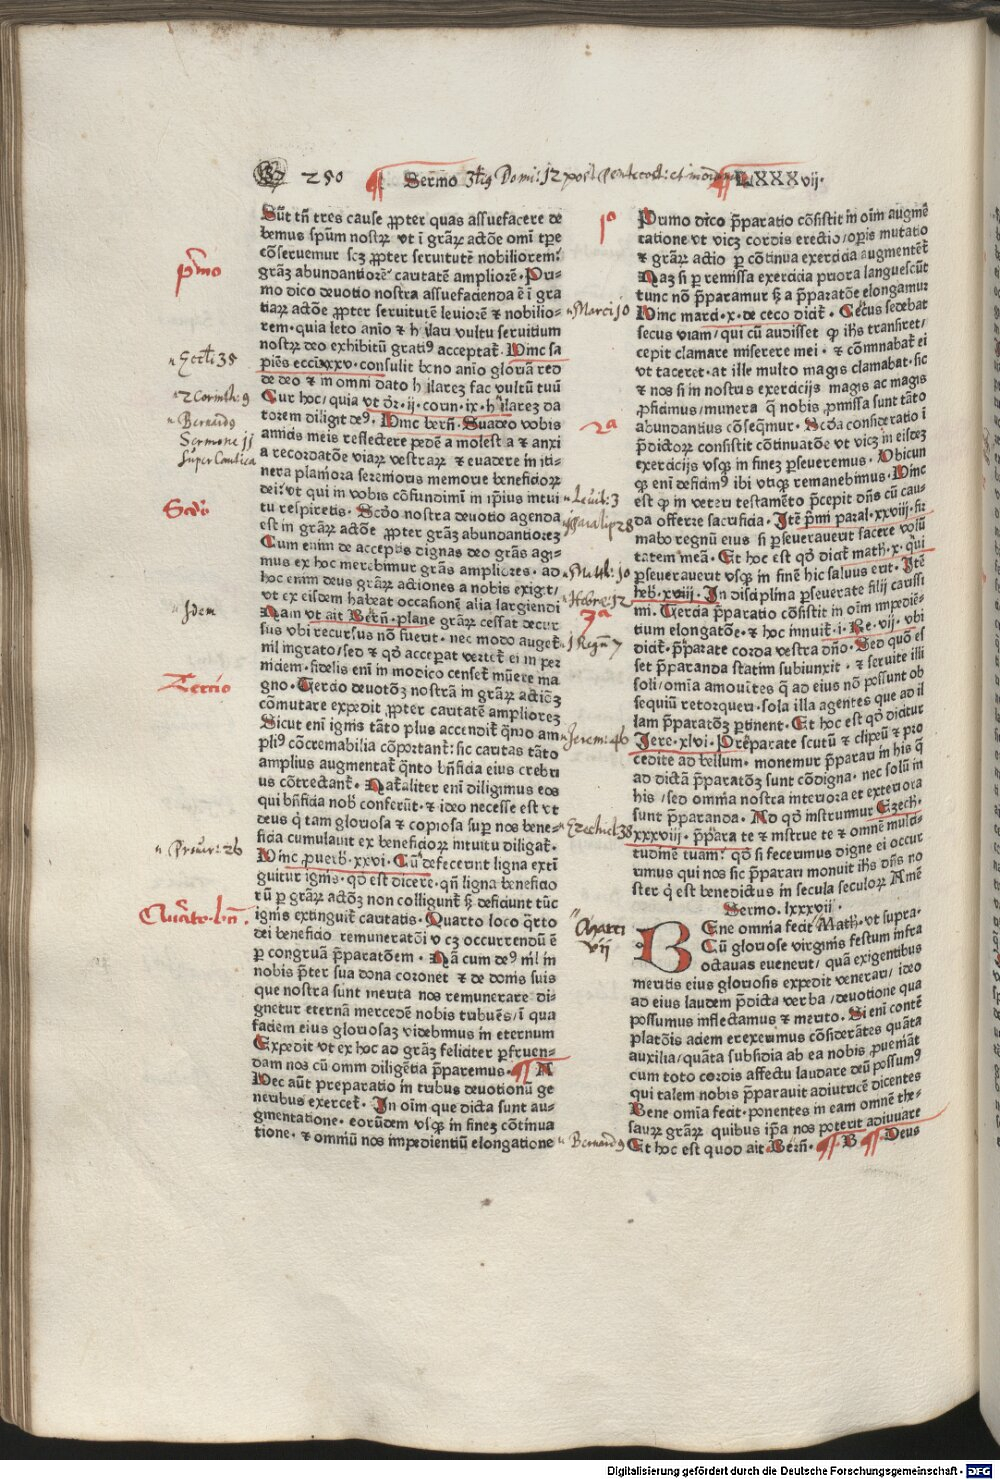 250 Sermo 3tiꝰ Domi: 12 post Pentecost: et LXXXvij.
Sūt tñ tres cause ꝓpter quas assuefacere de
bemus spūm nostꝝ vt ī grāꝝ actōe omī tꝑe
cōseruemur scꝫ ꝓpter seruitutē nobiliorem:
grāꝫ abundantiorē caritatē ampliorē. Pri-
mo dico deuotio nostra assuefacienda ē ī gra
tiaꝝ actōe ꝓpter seruitutē leuiorē ⁊ nobilio-
rem. quia leto anīo ⁊ hilari vultu seruitium
nostꝝ deo exhibitū gratiꝰ acceptat̄. Hinc sa
piēs eccīxxxv. consulit bono anīo gloriā red
de deo ⁊ in omni dato hilarez fac vultū tuū
Cur hoc/ quia vt dr̄. ij. corin. ix. hilarez da
torem diligit deꝰ. Hinc berñ. Suadeo vobis
amicis meis reflectere pedē a molesta ⁊ anxi
a recordatōe viaꝝ vestraꝝ ⁊ euadere in iti-
nera planiora serenioris memorie beneficioꝝ
dei: vt qui in vobis cōfundimī in ip̄ius intui
tu respiretis. Scd̄o nostra deuotio agenda
est in grāꝝ actōe ꝓpter grāꝫ abundantiorez
Cum enim de acceptis dignas deo grās agi-
mus ex hoc merebimur grās ampliores. ad
hoc enim deus grāꝝ actiones a nobis exigit/
vt ex eisdem habeat occasionē alia largiendi
Nam vt ait Berñ. plane grāꝝ cessat decur
sus vbi recursus nō fuerit. nec modo auget̄
nil ingrato/sed ⁊ qd̄ acceperat vertet̄ ei in per
niciem. fidelis enī in modico censet̄ mūere ma
gno. Tercio deuotōꝫ nostrā in grāꝝ actiōꝫ
cōmutare expedit ꝓpter caritatē ampliorez
Sicut enī ignis tāto plus accendit̄ qn̄to am
pliꝰ cōcremabilia cōportant̄: sic caritas tāto
amplius augmentat̄ qn̄to bñficia eius crebri
us cōtrectant̄. Nat̄aliter enī diligimus eos
qui bñficia nob̄ conferūt. ⁊ ideo necesse est vt
deus q̄ tam gloriosa ⁊ copiosa suꝑ nos bene-
ficia cumulauit ex beneficioꝝ intuitu diligat̄.
Hinc ꝓuerb̄. xxvi. Cū defecerint ligna exti
guitur ignis. qd̄ est dicere. qñ ligna beneficio
rū ꝑ grāꝝ actōꝫ non colligunt̄ ꝫ deficiunt tūc
ignis extinguit̄ caritatis. Quarto loco q̄rto
dei beneficio remuneratōi vꝫ occurrendū ē
ꝑ congruā p̄paratōem. Nā cum deꝰ nil in
nobis p̄ter sua dona coronet ⁊ de donis suis
que nostra sunt merita nos remunerare di-
gnetur eternā mercedē nobis tribuēs/ ī qua
faciem eius gloriosaꝫ videbimus in eternum
Expedit vt ex hoc ad grāꝫ feliciter ꝑfruen-
dam nos cū omni diligētia p̄paremus. ¶ A
Hec aūt preparatio in tribus deuotionū ge
neribus exercet̄. In oīm que dicta sunt au-
gmentatione. eorūdem vsqꝫ in finez cōtinua
tione. ⁊ omniū nos impedientiū elongatione
Primo dico p̄paratio cōsistit in oīm augmē
tatione vt vicꝫ cordis erectio/ oꝑis mutatio
⁊ grāꝝ actio ꝑ cōtinua exercicia augmentēt̄
Naꝫ si ꝑ remissa exercicia priora languescūt
tunc nō p̄paramur ꝫ a p̄paratōe elongamur
Hinc marci. x. de ceco dicit̄. Cecus sedebat
secus viam/ qui cū audisset qꝫ ih̄s transiret/
cepit clamare miserere mei. ⁊ cōminabat̄ ei
vt taceret. at ille multo magis clamabat. sic
⁊ nos si in nostris exercicijs magis ac magis
ꝓficimus/munera q̄ nobis ꝓmissa sunt tāto
abundantius cōseqmur. Scd̄a consideratio ī
p̄dictoꝝ consistit cōtinuatōe vt vicꝫ in eisdeꝫ
exercicijs vsqꝫ in finez ꝑseueremus. Vbicun
qꝫ enī deficimꝰ ibi vtiqꝫ remanebimus. Hinc
est qꝫ in veteri testamēto p̄cepit dñs cū cau-
da offerre sacrificia. Itē p̄mi paral. xxviij. fir
mabo regnū eius si ꝑseuerauerit facere volū
tatem meā. Et hoc est qd̄ dicit̄ math. x. qui
ꝑseuerauerit vsqꝫ in finē hic saluus erit. Itē
heb̄. xviij. In disciplina ꝑseuerate filij carissi
mi. Tercia p̄paratio cōsistit in oīm impediē-
tium elongatōe. ⁊ hoc innuit̄. i. Re. vij. vbi
dicit̄. p̄parate corda vestra dño. Sed quō es
set p̄paranda statim subiunxit. ⁊ seruite illi
soli/ omīa amouētes q̄ ad eius nō possunt ob
sequiū retorqueri. sola illa agentes que ad il
lam p̄paratōꝫ ꝑtinent. Et hoc est qd̄ dicitur
Jere. xlvi. Preparate scutū ⁊ clipeū ⁊ pro
cedite ad bellum. monemur p̄parari in his q̄
ad dictā p̄paratōꝫ sunt cōdigna. nec solū in
his/ sed omnia nostra interiora ⁊ exteriora
sunt p̄paranda. Ad qd̄ instruimur Ezech.
xxxviij. p̄para te ⁊ instrue te ⁊ omnē multi-
tudinē tuam: qd̄ si fecerimus digne ei occur
rimus qui nos sic p̄parari monuit ih̄s dñs no
ster q̄ est benedictus in secula seculoꝝ Amē
Sermo. lxxxvij.
BEne omnia fecit Math. vt supra.
Cū gloriose virginis festum infra
octauas euenerit/ quā exigentibus
meritis eius gloriosis expedit venerari/ ideo
ad eius laudem p̄dicta verba/ deuotione qua
possumus inflectamus ⁊ merito. Si enī contē
platōis aciem erexerimus cōsiderātes quāta
auxilia/ quāta subsidia ab ea nobis ꝓueniāt
cum toto cordis affectu laudare deū possumꝰ
qui talem nobis p̄parauit adiutricē dicentes
Bene omīa fecit. ponentes in eam omnē the-
sauꝝ grāꝝ quibus ip̄a nos poterit adiuuare
Et hoc est quod ait Berñ. ¶ B ¶ Deus
pͥmo
Eccli: 35
2 Corinth: 9
Bernardꝰ
Sermone 11
super Cantica
Scd̄o
Idem
Tercio
Prouer: 26
Quarto
1º
Marci 10
2ª
Leuit: 3
Paralip 28
Math: 10
Hebre: 12
3ª
1 Regū 7
Jerem: 46
Ezechiel 38
Marci
vij
Bernardꝰ
Digitalisierung gefördert durch die Deutsche Forschungsgemeinschaft - DFG